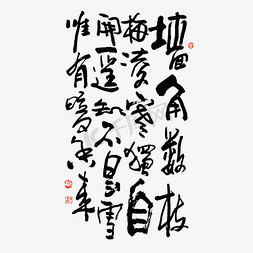 墙角數枝
梅凌寒獨自
開遥知不是雪
惟有暗香来